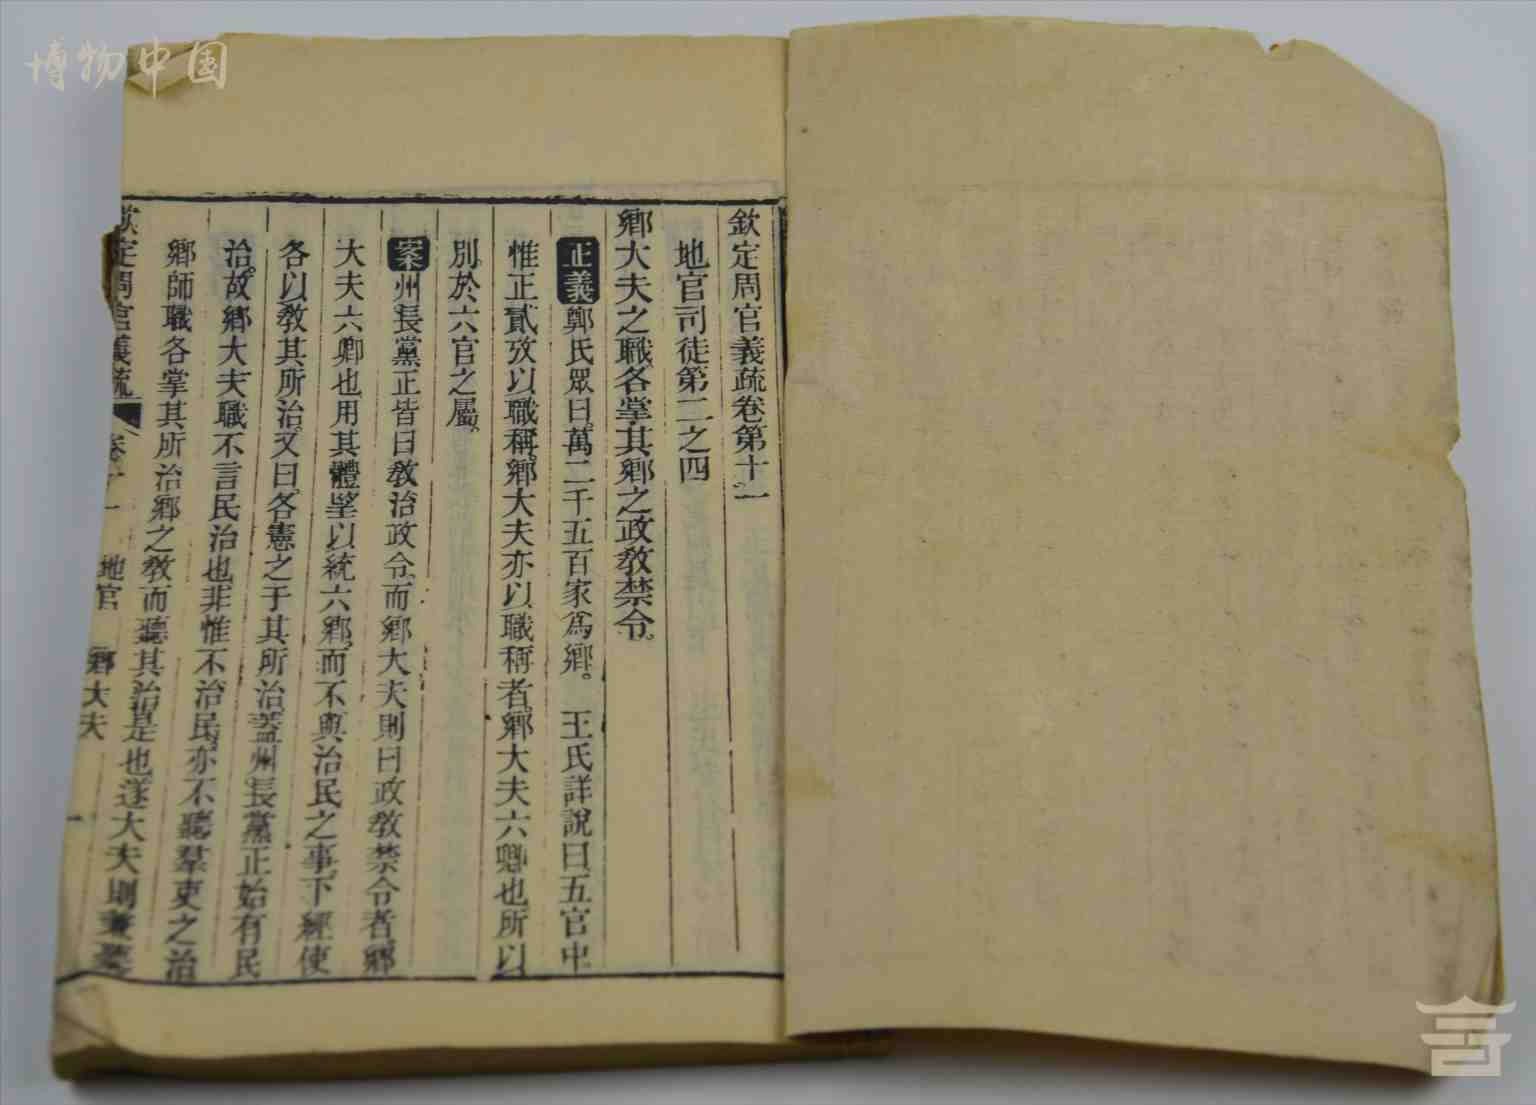 博物中国
欽定周官義疏卷第十一
地官司徒第二之四
鄉大夫之職各掌其鄉之政教禁令
正義鄭氏眾曰萬二千五百家為鄉。王氏詳說曰五官中
惟正貳攷以職稱鄉大夫亦以職稱者鄉大夫六卿也所以
別於六官之屬
案州長黨正皆曰教治政令而鄉大夫則曰政教禁令者鄉
大夫六卿也用其體望以統六鄉而不與治民之事下經使
各以教其所治又曰各憲之于其所治蓋州長黨正始有民
治故鄉大夫職不言民治也非惟不治民亦不聽羣吏之治
鄉師職各掌其所治鄉之教而聽其治是也遂大夫則兼
欽定周官義疏 卷十一 地官 鄉大夫 一